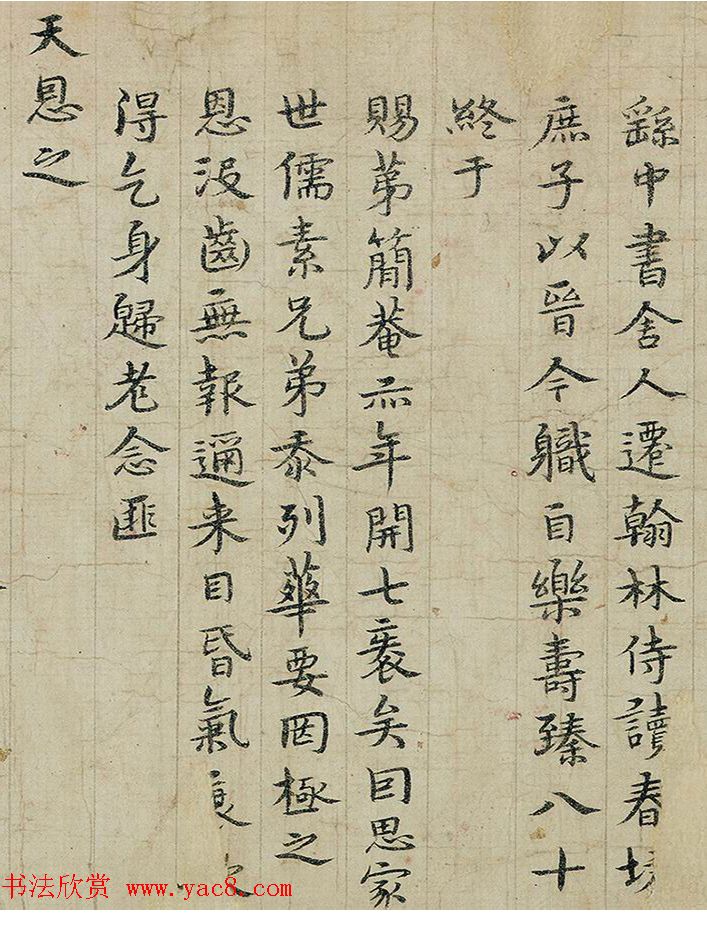 繇中書舍人遷翰林侍讀春坊
庶子以晉今職自樂壽臻八十
終于
賜第簡菴亦年開七袠矣因思家
世儒素兄弟忝列華要罔極之
恩沒齒無報邇来目昏氣衰
得乞身歸老念匪
天恩之
书法欣赏 www.yac8.com